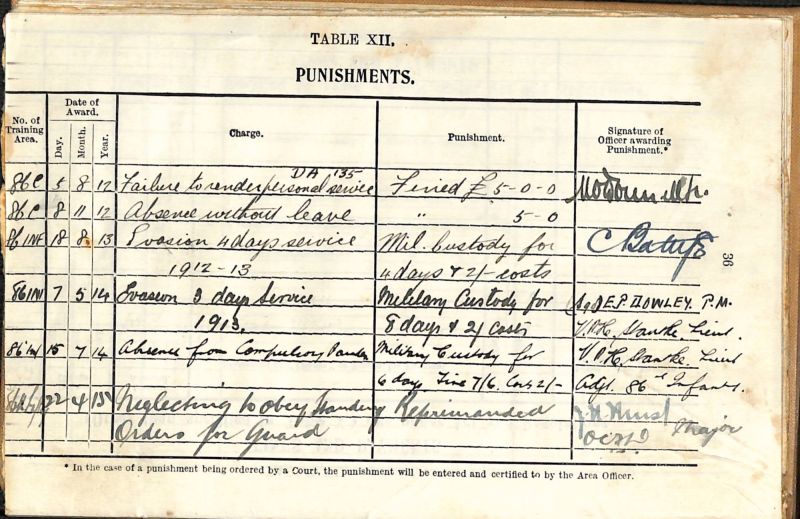 TABLE XII.
PUNISHMENTS.
No. of Training Area.
Date of Award.
Day. Month. Year.
Charge.
Punishment.
Signature of Officer awarding Punishment.*
DA 135
86C 5 8 12 Failure to render personal service Fined £ 5-0-0
86C 8 11 12 Absence without leave " 5-0
86 INF 18 8 13 Evasion 4 days service Mil. Custody for
1912-13 4 days & 2/- costs
86 INF 7 5 14 Evasion 3 days Service Military Custody for (Sgd) E.P. DOWLEY P.M.
1913. 8 days & 2/ costs Lieut.
86 Inf 15 7 14 Absence from Compulsory Parades Military Custody for Lieut
6 days Fine 7/6. Costs 2/- Adjt. 86th Infantry.
22 4 15 Neglecting to obey Standing Reprimanded
Orders for Guard Major
36
* In the case of a punishment being ordered by a Court, the punishment will be entered and certified to by the Area Officer.